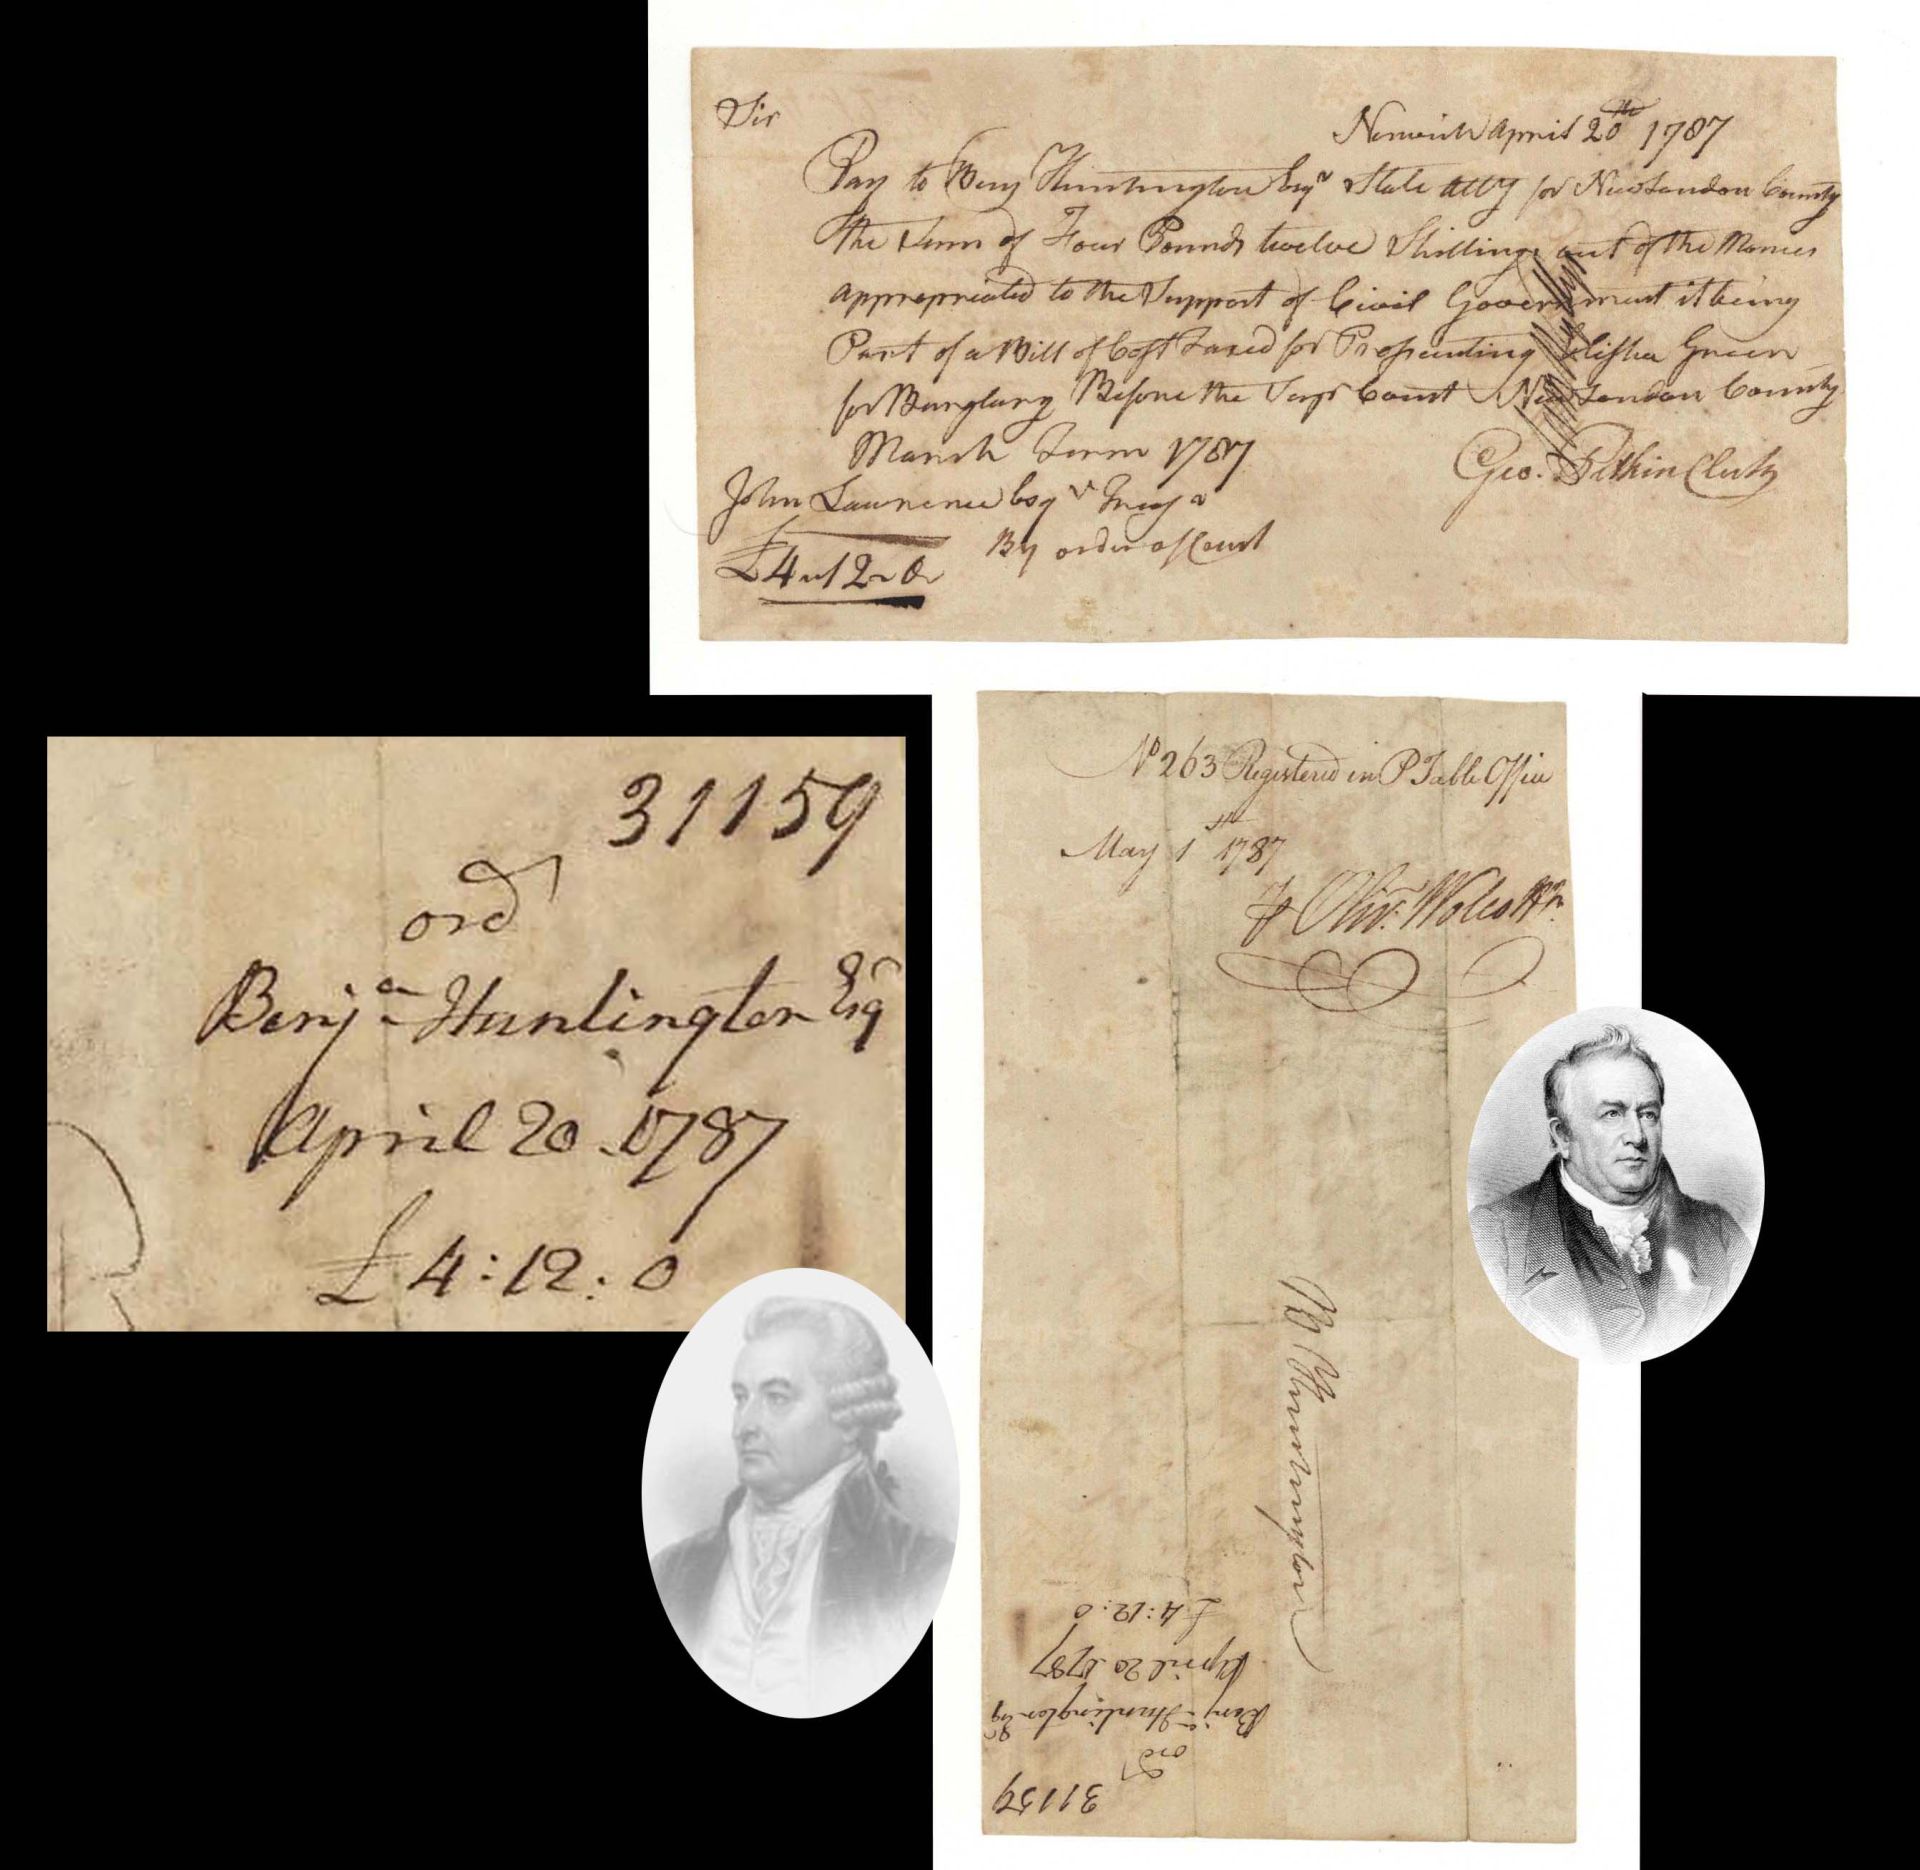 Sir
Norwich April 20th 1787
Pay to Benj Huntington Esqr State Atty for New London County
the Sum of Four Pounds twelve Shillings out of the Monies
appropriated to the Support of Civil Government it being
Part of a Bill of Cost Taxed for Prosecuting Elisha Green
for Burglary Before the Supr Court New London County
March Term 1787
Geo. Pitkin Clerk
John Lawrence Esqr Treasr
By order of Court
£4-12-0
31159
ord
Benja Huntington Esq
April 20. 1787
£4:12:0
No 263 Registered in P Table Office
May 1st 1787
Olivr. Wolcott Jr.
B Huntington
£4:12:0
April 20. 1787
Benja Huntington Esq
ord
31159